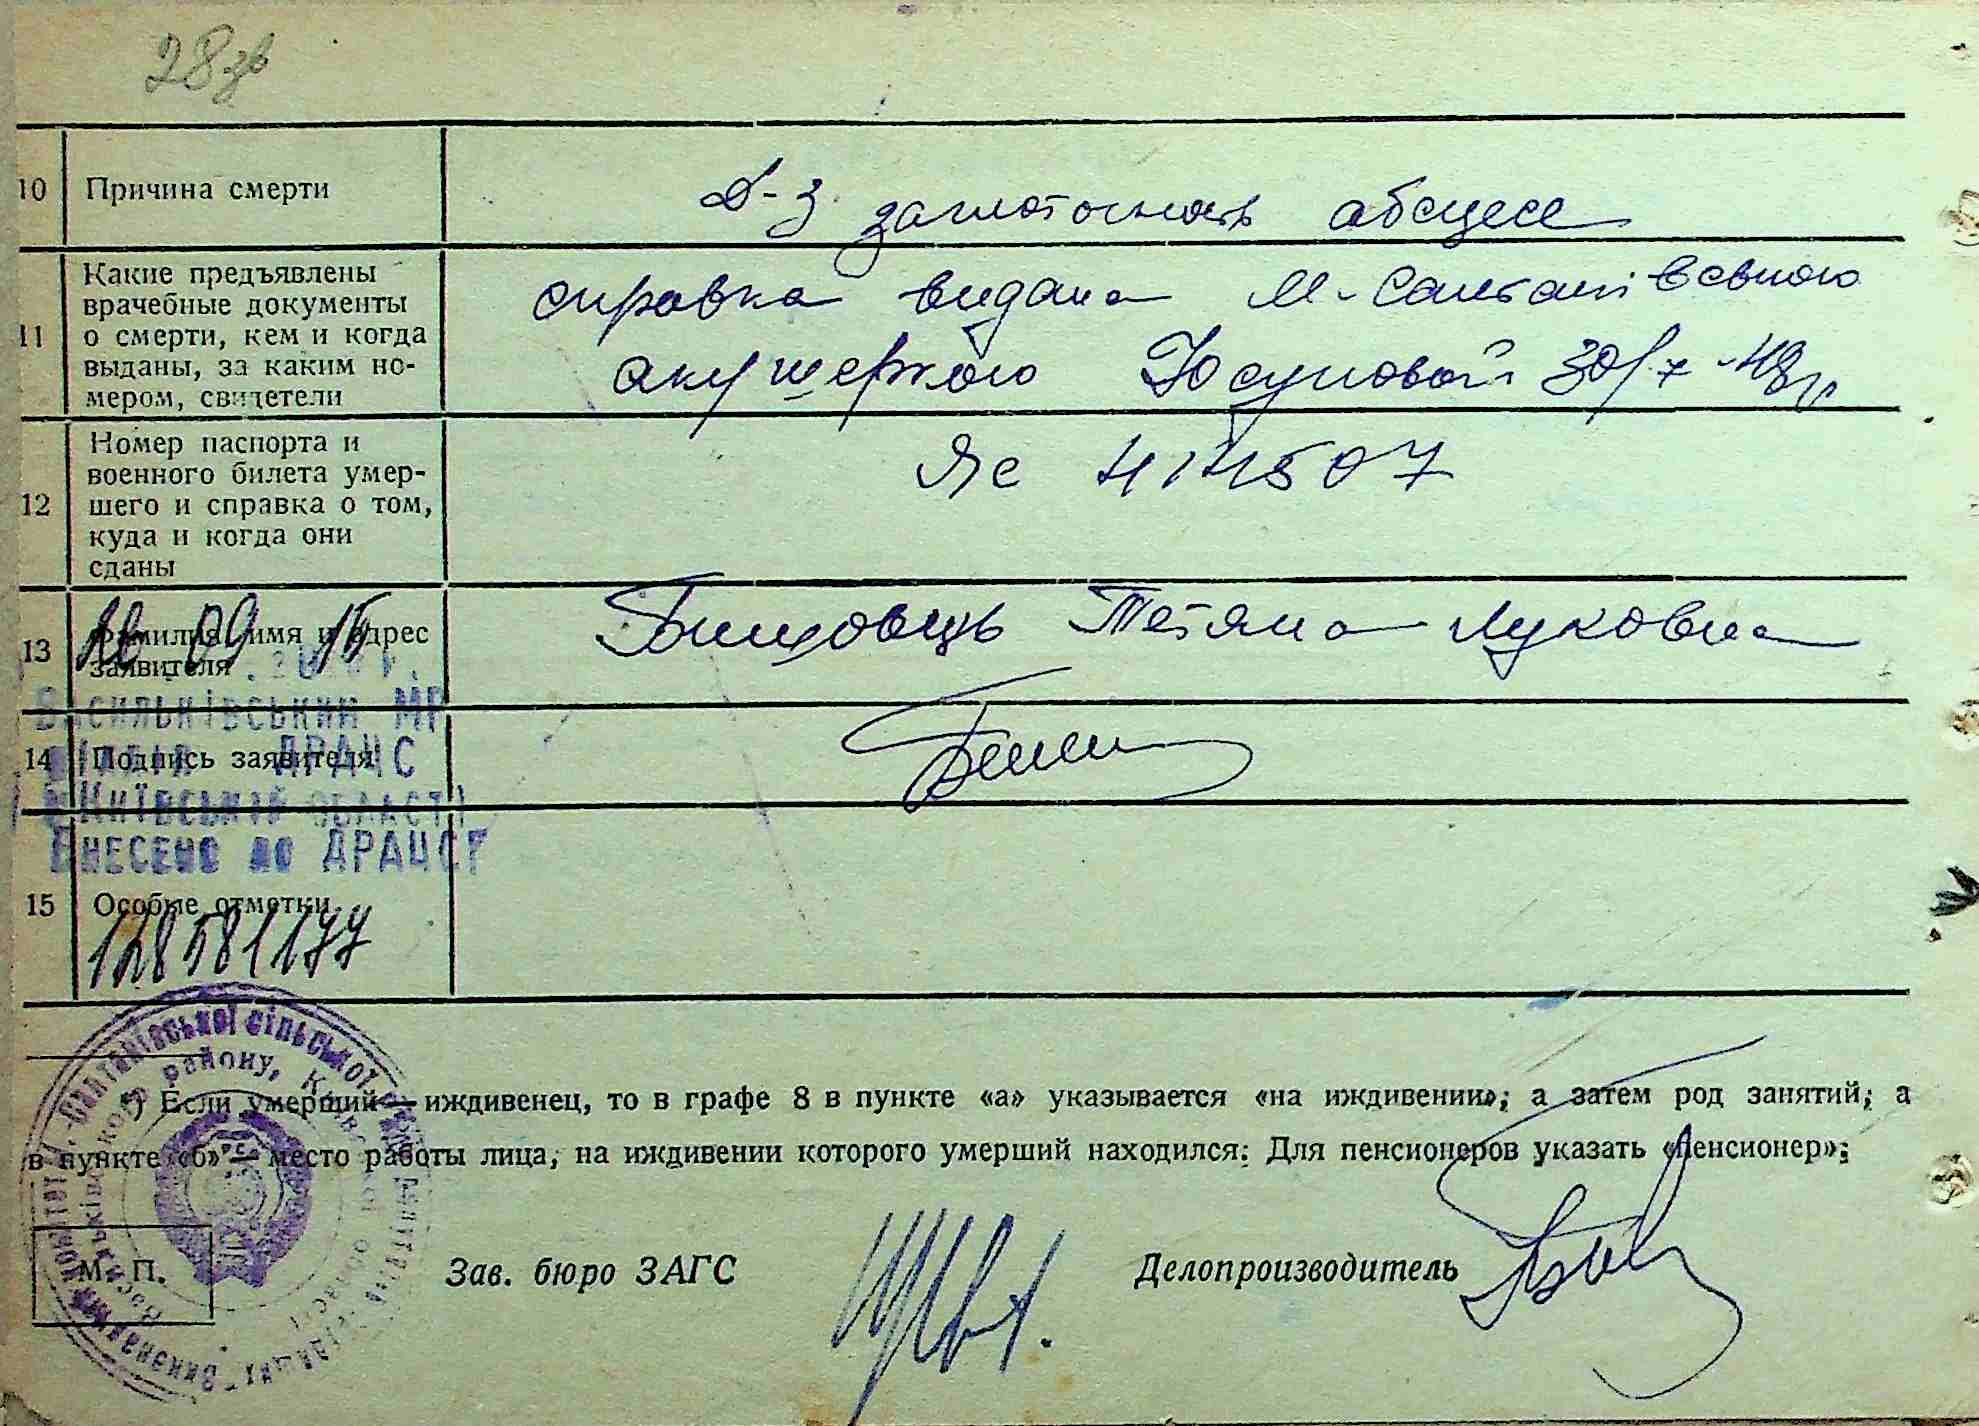 28 зв
10 Причина смерти
Д-з. заглоточный абсцесс
11 Какие предъявлены
врачебные документы
о смерти, кем и когда
выданы, за каким но-
мером, свидетели
справка видана М-Салтанівською
акушеркою Юсуповой 30/
12 Номер паспорта и
военного билета умер-
шего и справка о том,
куда и когда они
сданы
Яс 414507
13 Фамилия, имя и адрес
заявителя
09 15
Тетяна Луковна
Васильківський МР
ДРАЦС
Київській області
Внесено до ДРАЦСГ
14 Подпись заявителя
15 Особые отметки
128581177
*) Если умерший — иждивенец, то в графе 8 в пункте «а» указывается «на иждивении»; а затем род занятий; а
в пункте «б» — место работы лица, на иждивении которого умерший находился: Для пенсионеров указать «Пенсионер»;
М. П.
Зав. бюро ЗАГС
Делопроизводитель
Салтанівської сільської Ради депутатів трудящих
Виконавчий комітет
Васильківського району, Київської області